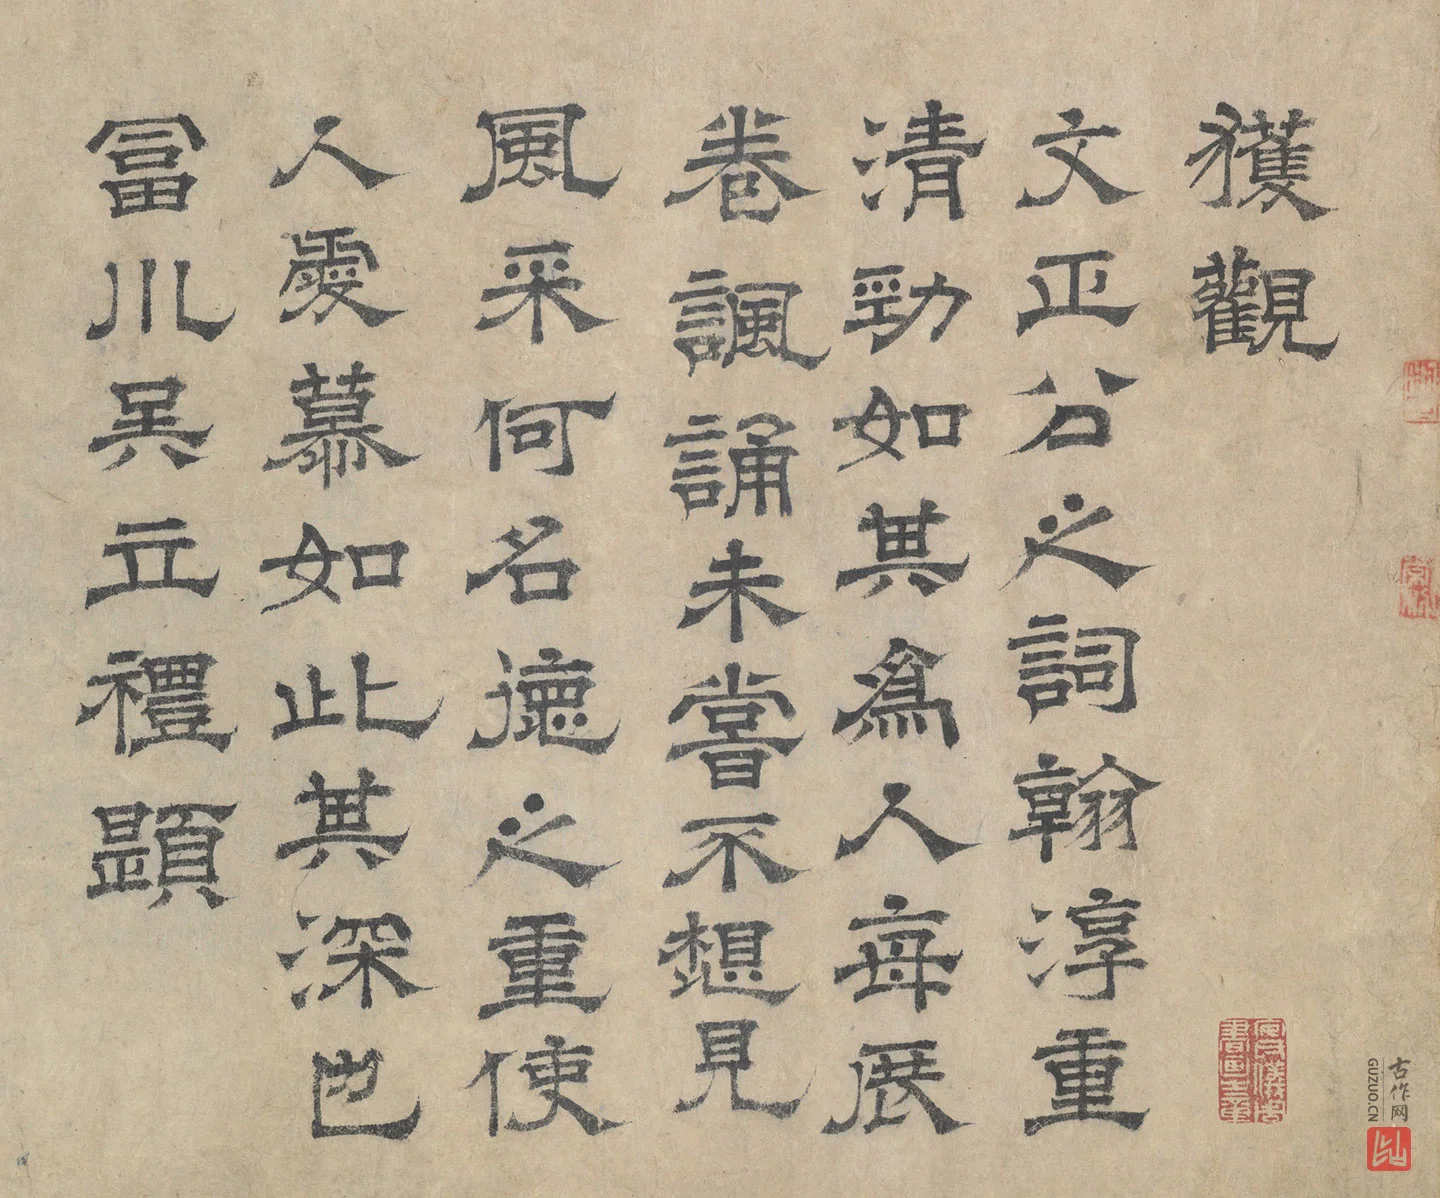 獲觀
文正公之詞翰淳重
清勁如其爲人每展
卷諷誦未嘗不想見
風采何名德之重使
人愛慕如此其深也
富川吴立禮題
古作网
GUZUO.CN